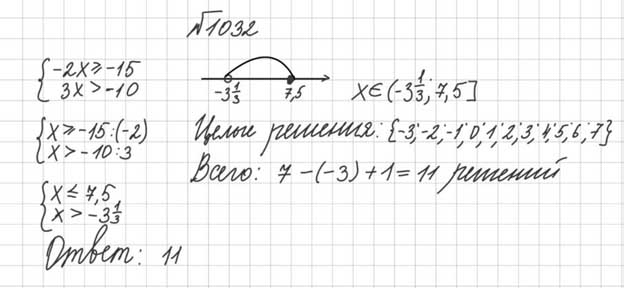 №1032
{-2x ≥ -15
3x > -10
-3 1/3 7,5
x ∈ (-3 1/3; 7,5]
{x ≥ -15:(-2)
x > -10:3
Целые решения: {-3; -2; -1; 0; 1; 2; 3; 4; 5; 6; 7}
Всего: 7 - (-3) + 1 = 11 решений
{x ≤ 7,5
x > -3 1/3
Ответ: 11